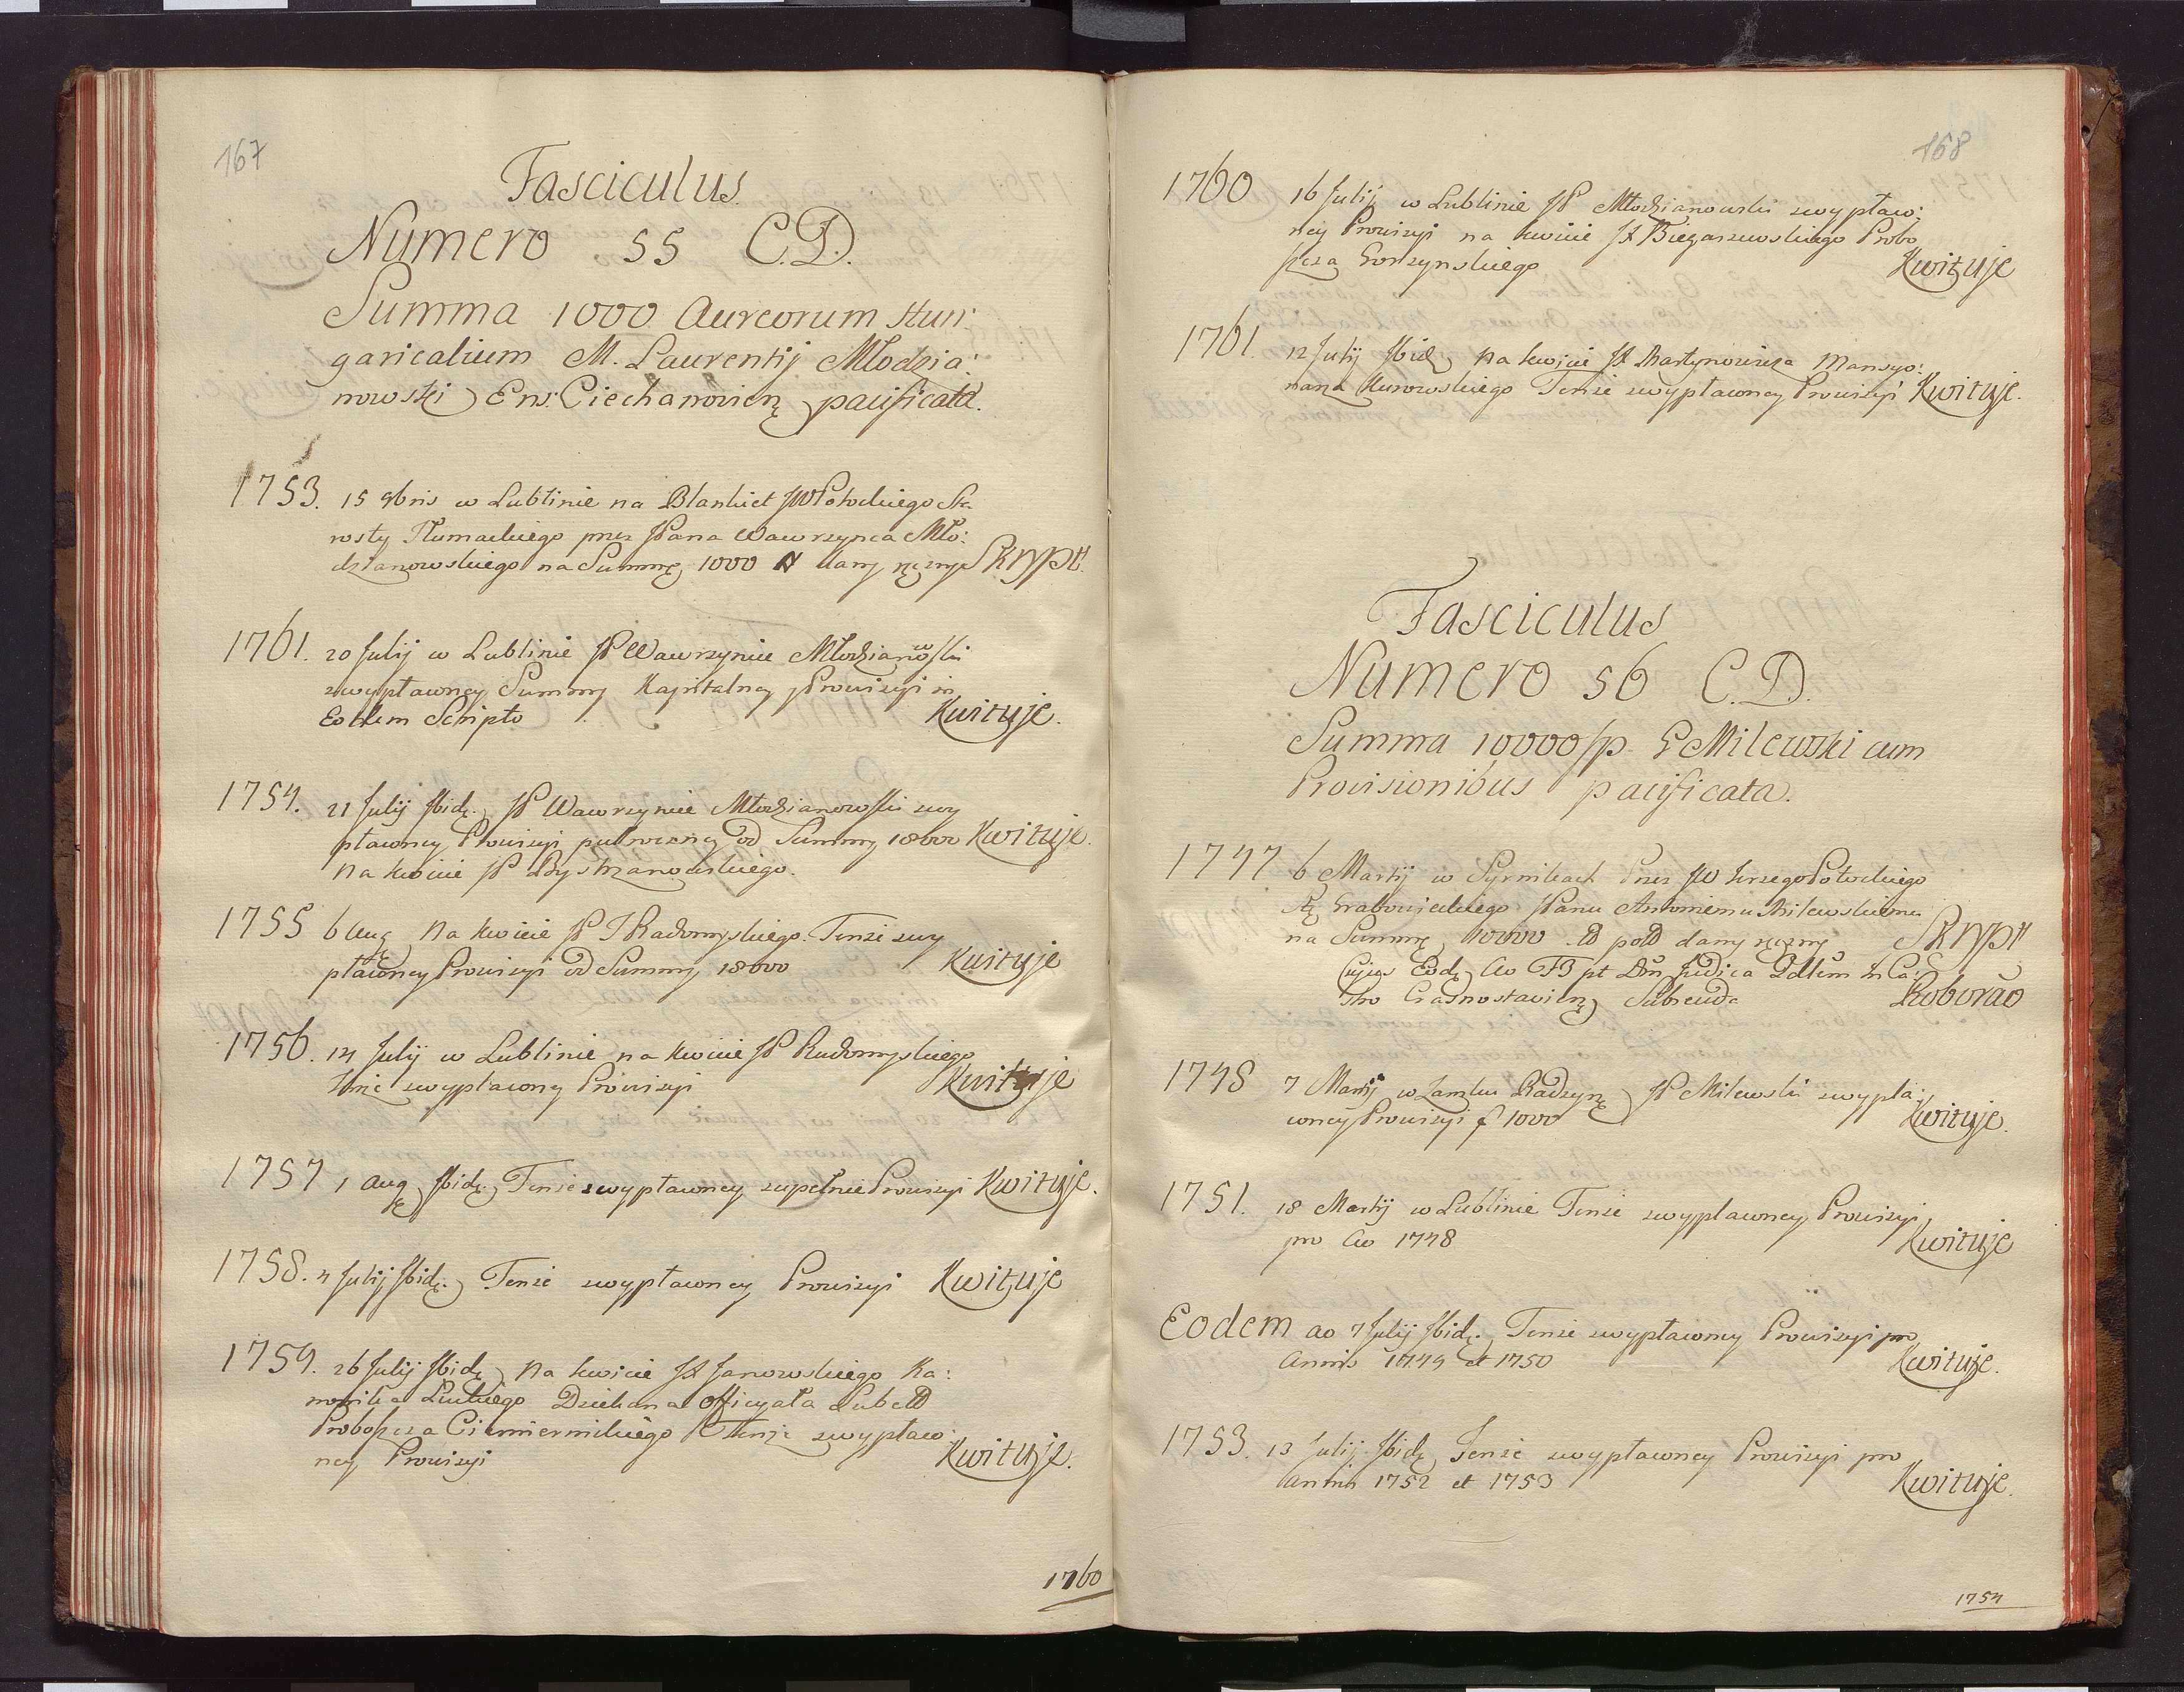 167
Fasciculus
Numero 55 C.D.
Summa 1000 Aureorum Hun:
garicalium M. Laurentij Młodzia:
nowski Ens: Ciechanovien pacificata.
1753. 15 9bris w Lublinie na Blankiet JW Potockiego Sta
rosty Tłumackiego przez JPana Wawrzynca Mło:
dzianowskiego na Summę 1000 # dany ręczny Skrypt.
1761. 20 Julij w Lublinie JP Wawrzyniec Młodzianowski
zwypłaconey Summy Kapitalney y Prowizyi in
Eodem Scripto Kwituje.
1754. 21 Julij Ibid. JP Wawrzyniec Młodzianowski zwy
płaconey Prowizyi pułroczney od Summy 18000 Kwituje.
na kwicie JP Bystrzanowskiego.
1755 6 Aug na kwicie JP Radomyskiego. Tenże zwy
płaconey Prowizyi od Summy 18000 Kwituje
1756. 14 Julij w Lublinie na kwicie JP Radomyskiego
Tenże zwypłaconey Prowizyi Kwituje
1757 1 Aug Ibid. Tenże zwypłaconey zupełnie Prowizyi Kwituje.
1758. 4 Julij Ibid. Tenże zwypłaconey Prowizyi Kwituje
1759. 26 Julij Ibid na kwicie JX Janowskiego Ka:
nonika Luckiego Dziekana Officyała Lubel
Proboszcza Ciemiernickiego Tenże zwypłaco
ney Prowizyi Kwituje.
1760
168
1760 16 Julij w Lublinie JP Młodzianowski zwypłaco:
ney Prowizyi na kwicie JX Biegaszewskiego Probo
szcza Gorzynskiego Kwituje
1761. 12 Julij Ibid na kwicie JX Martynowicza Mansyo:
narza Kurowskiego Tenże zwypłaconey Prowizyi Kwituje.
Fasciculus
Numero 56 C.D.
Summa 10000 fp G Milewski cum
Provisionibus pacificata.
1747 6 Martij w Syrnikach Przez JW Jerzego Potockiego
Stę Grabowieckiego JPanu Antoniemu Milewskiemu
na Summę 10000 # pold dany ręczny Skrypt
Cujus Eod Ao FB pt Dm Judica Qdlem in Ca:
stro Crasnostavien Subsecuta Roborao
1748 7 Martij w Zamku Radzyn JP Milewski zwypła:
coney Prowizyi f 1000 Kwituje.
1751. 18 Martij w Lublinie Tenże zwypłaconey Prowizyi
pro Ao 1748 Kwituje
Eodem ao 7 Julij Ibid. Tenże zwypłaconey Prowizyi pro
Annis 1749 et 1750 Kwituje.
1753. 13 Julij Ibid Tenże zwypłaconey Prowizyi pro
Annis 1752 et 1753 Kwituje.
1754